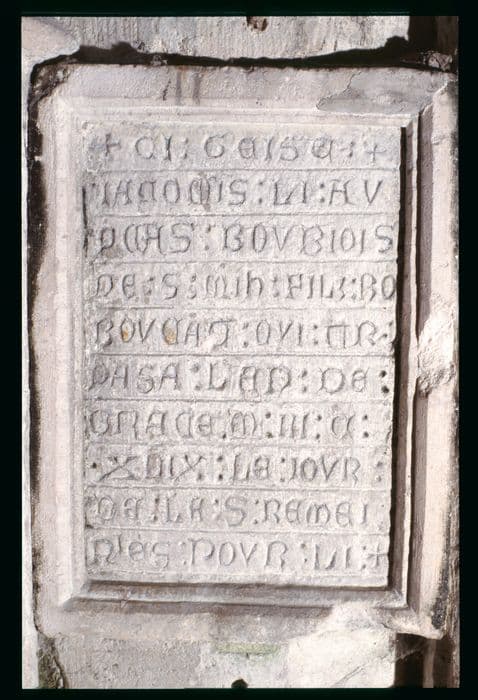 + CI : GEIST : +
IACOMIS : LI : AV
DCAS : BOVRIOIS
DE : S : MIH : FILZ : BO
BOVCAT : QVI : TR
PASA : LAN : DE :
GRACE : M : III : C :
XLIX : LE : IOVR :
DE : LE : S : REMEI :
PRIES : POVR : LI : +